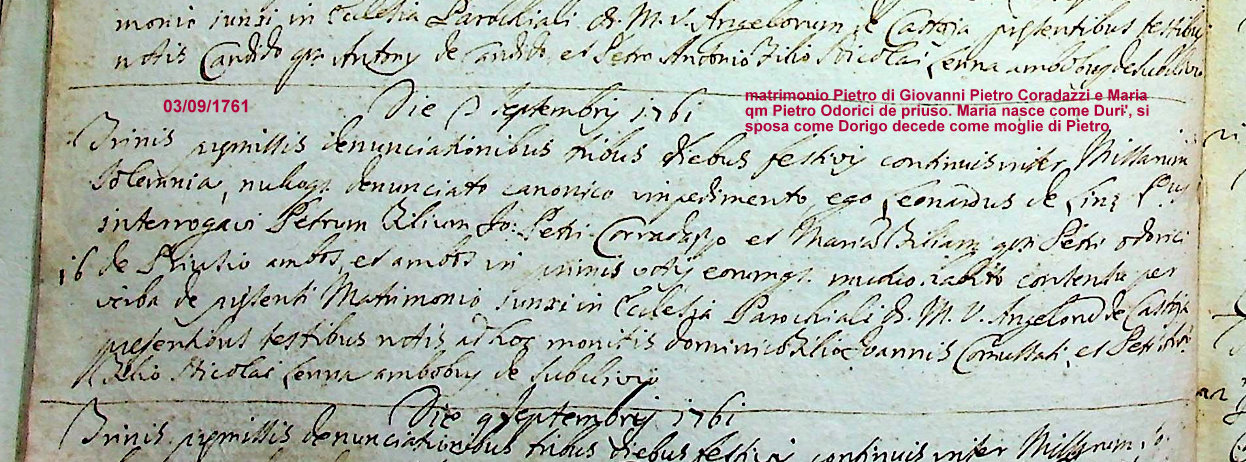 monio iunxi in Ecclesia Parochiali B. M. V. Angelorum de Castoia presentibus testibus
notis Candido qm Antony de Candido, et Petro Antonio Filio Nicolai Lenna ambobus de
03/09/1761
Die 3 Septembris 1761
matrimonio Pietro di Giovanni Pietro Coradazzi e Maria
qm Pietro Odorici de priuso. Maria nasce come Duri', si
sposa come Dorigo decede come moglie di Pietro
Trinis premissis denunciationibus tribus diebus festivis continuis inter Missarum
solemnia, nulloq. denunciato canonico impedimento, ego Leonardus de
interrogavi Petrum Filium Jo: Petri Corradazzo et Mariã Filiam qm Petri Odorici
16 de Priusio ambos, et ambos in primis votis eorumq. mutuo habito consensu per
verba de presenti Matrimonio iunxi in Ecclesia Parochiali B. M. V. Angelorũ de Castoja
presentibus testibus notis ad hoc monitis Dominico Filio Joannis et Petro
Filio Nicolai Lenna ambobus de
Die 9 Septembris 1761
Trinis premissis denunciationibus tribus diebus festivis continuis inter Missarum